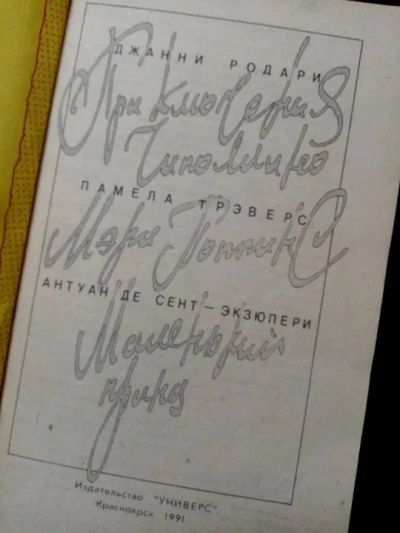 ДЖАННИ РОДАРИ
Приключения
Чиполлино
ПАМЕЛА ТРЭВЕРС
Мэри Поппинс
АНТУАН ДЕ СЕНТ — ЭКЗЮПЕРИ
Маленький
принц
Издательство "УНИВЕРС"
Красноярск 1991